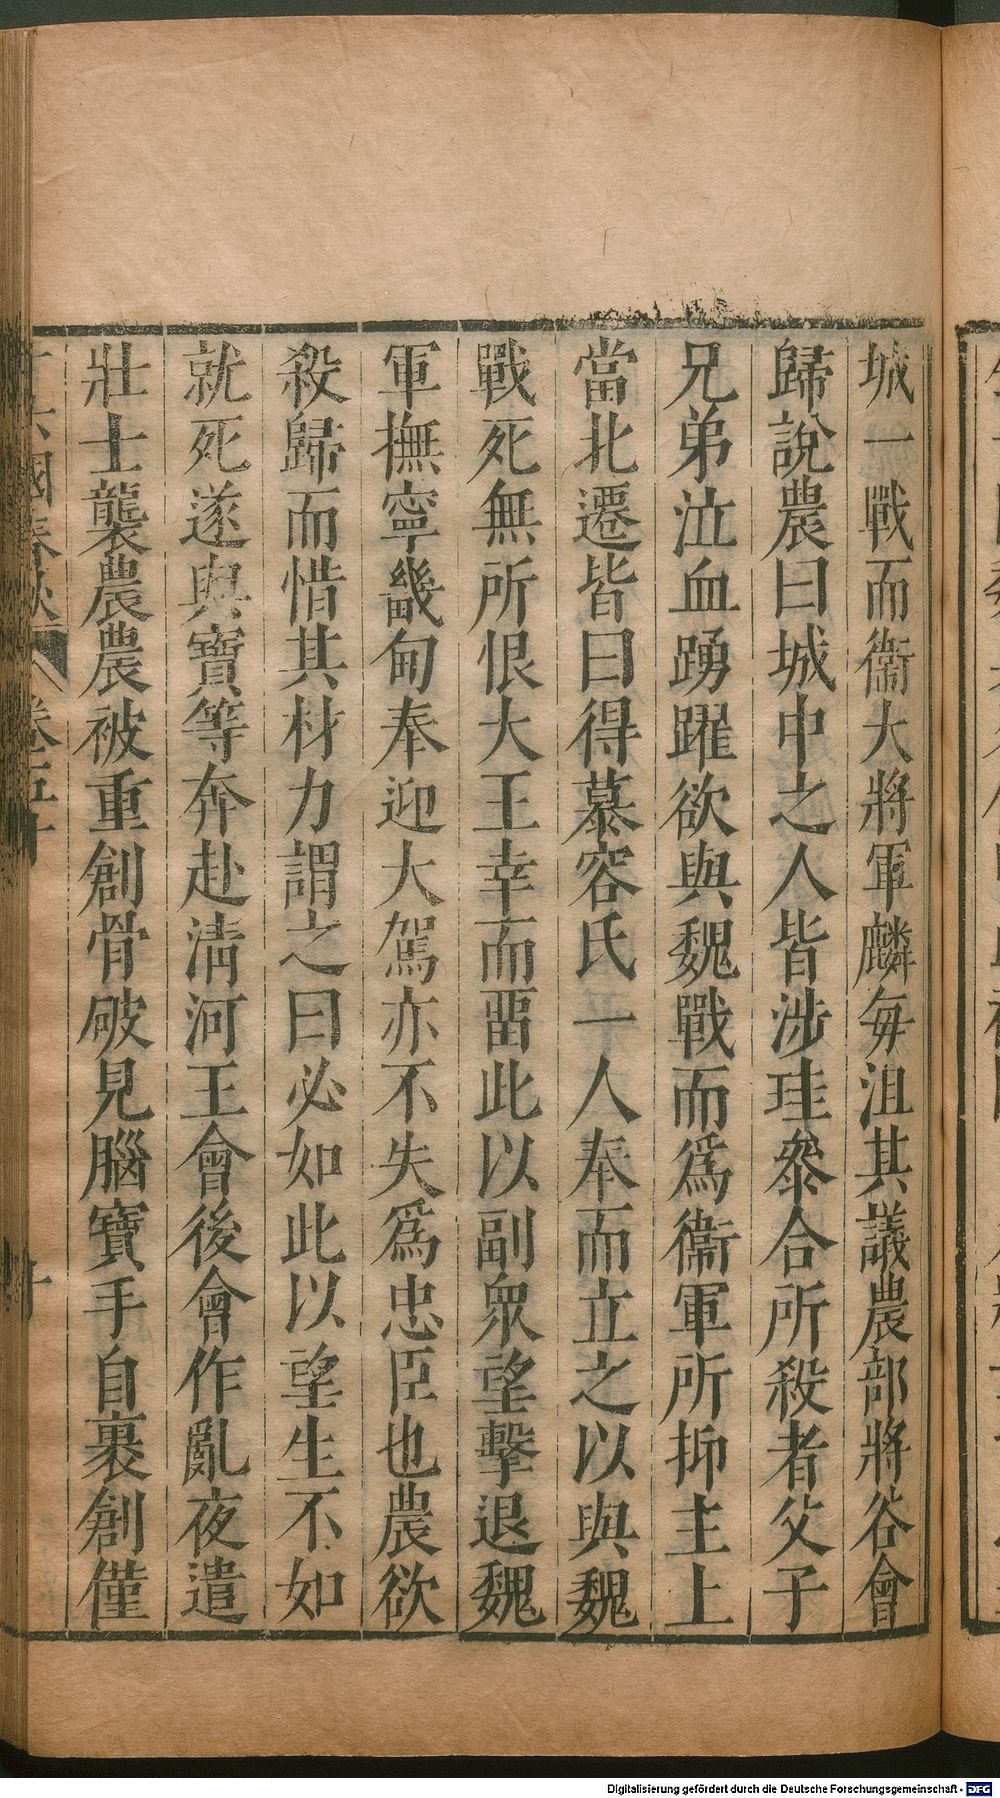 城一戰而衞大將軍麟每沮其議農部將谷會
歸說農曰城中之人皆涉珪叅合所殺者父子
兄弟泣血踴躍欲與魏戰而爲衞軍所抑主上
當北遷皆曰得慕容氏一人奉而立之以與魏
戰死無所恨大王幸而畱此以副衆望擊退魏
軍撫寧畿甸奉迎大駕亦不失爲忠臣也農欲
殺歸而惜其材力謂之曰必如此以望生不如
就死遂與寶等奔赴淸河王會後會作亂夜遣
壯士襲農農被重創骨破見腦寶手自裹創僅
國春秋 卷五十
十
Digitalisierung gefördert durch die Deutsche Forschungsgemeinschaft - DFG